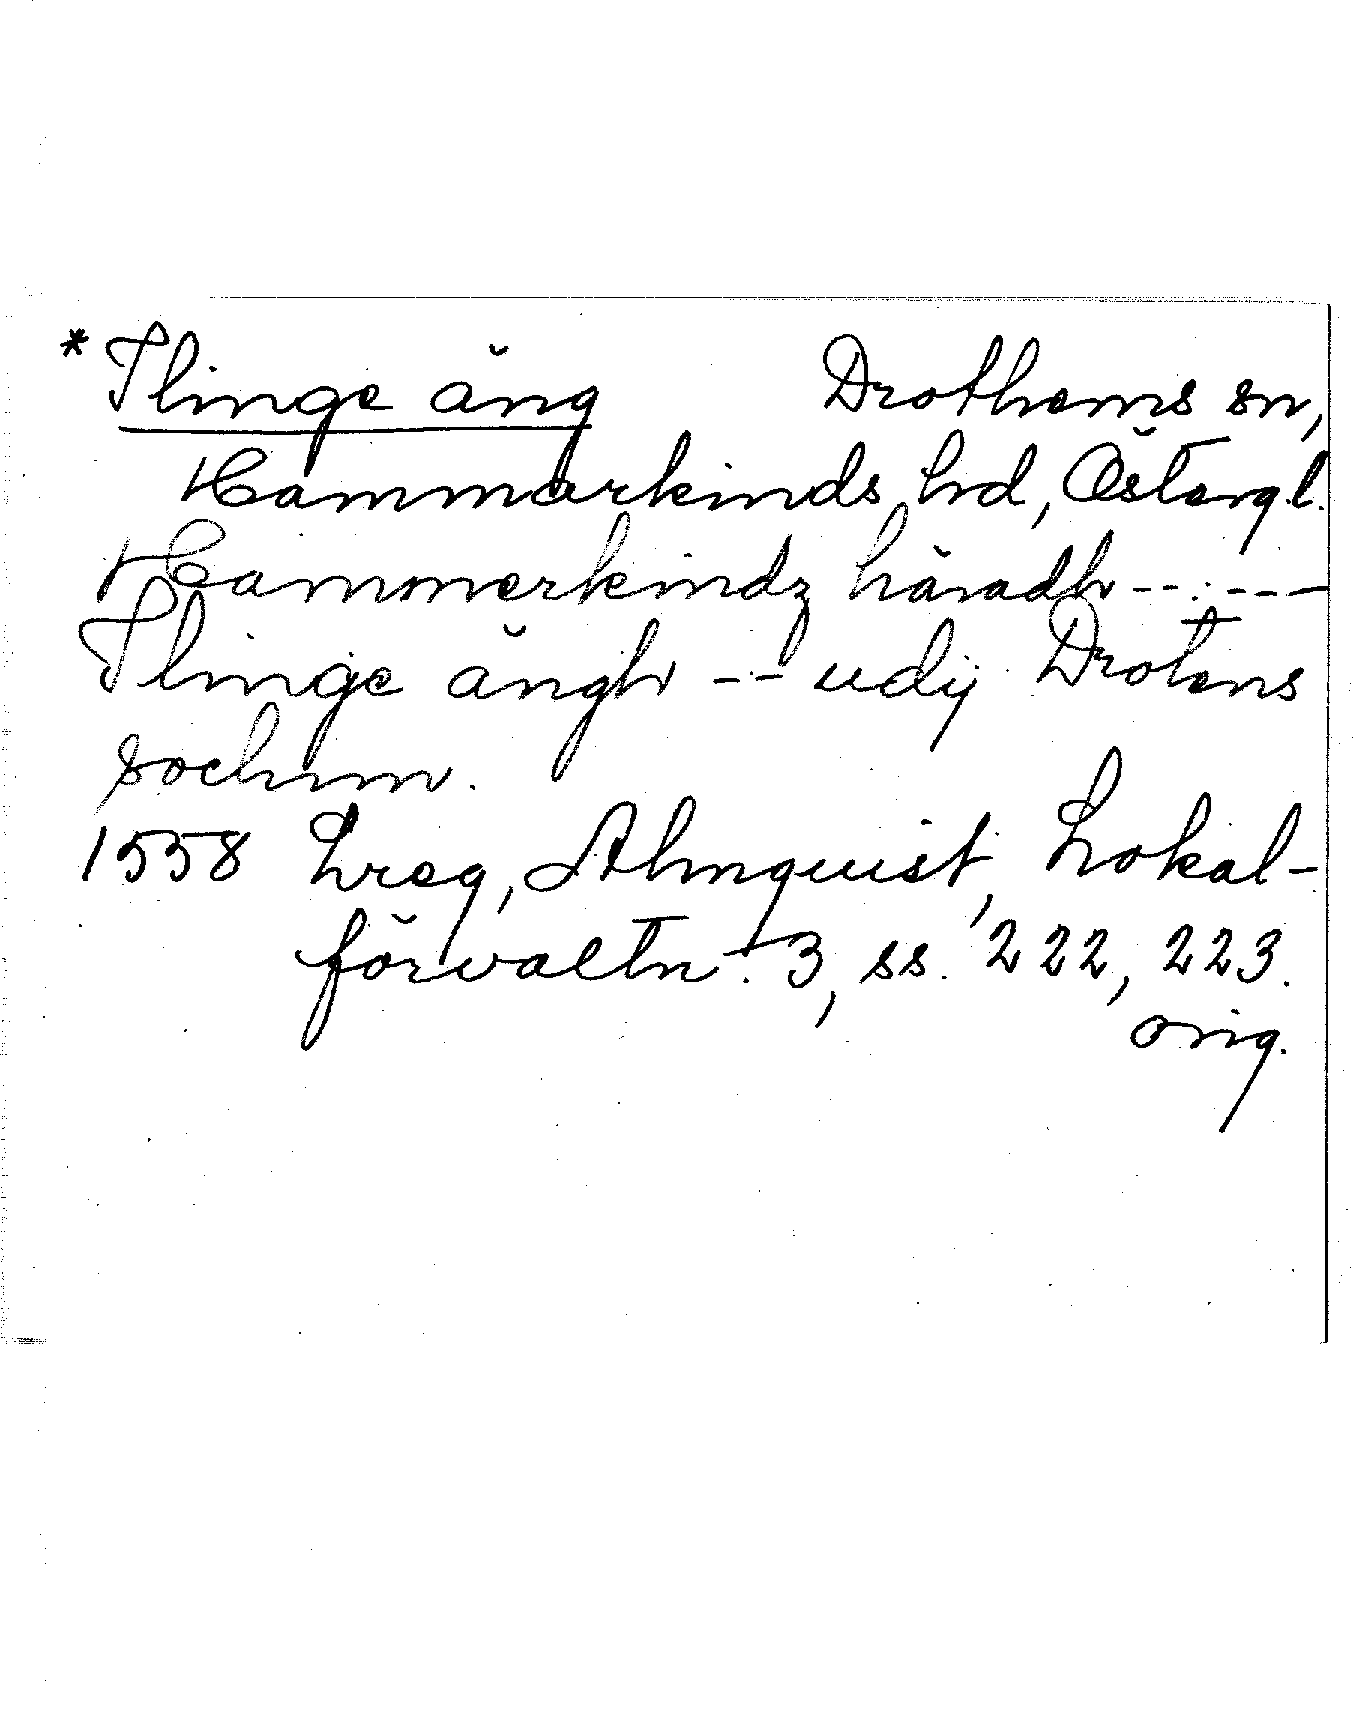 * Tlinge äng Drothems sn,
Hammarkinds hd, Östergl.
Hammerkindz häradh -- . ---
Tlinge ängh -- udij Drotens
sochnn.
1558 Lreg, Almquist, Lokal-
förvaltn. 3, ss. 222, 223.
orig.